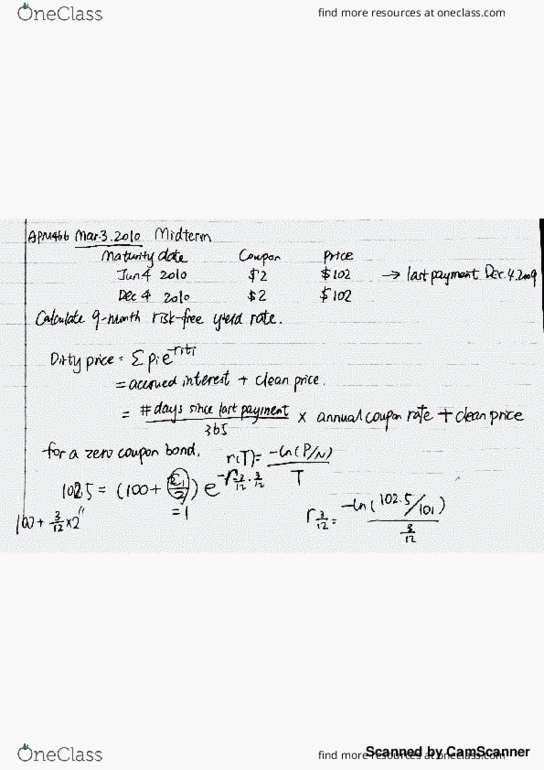 OneClass find more resources at oneclass.com
APM466 Mar.3.2010 Midterm
Maturity date Coupon Price
Jun 4 2010 $2 $102 → last payment Dec.4.2009
Dec 4 2010 $2 $102
Calculate 9-month risk-free yield rate.
Dirty price = Σ pi e^-riti
= accrued interest + clean price.
= # days since last payment / 365 × annual coupon rate + clean price
for a zero coupon bond, r(T) = -ln(P/N) / T
102.5 = (100 + C1/2) e^-r3/12 · 3/12
= 1
100 + 3/12 × 2" r3/12 = -ln(102.5/101) / 3/12
OneClass find more resources at oneclass.com
Scanned by CamScanner